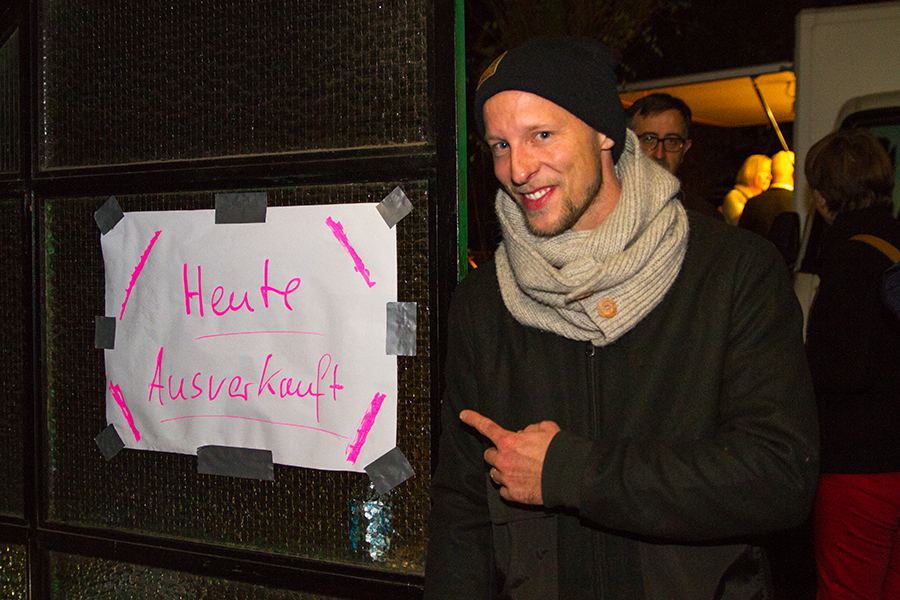 Heute
Ausverkauft